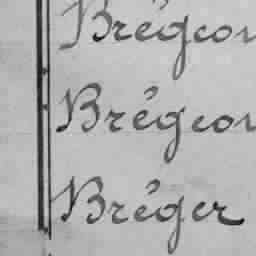 Brégeon
Brégeon
Bréger